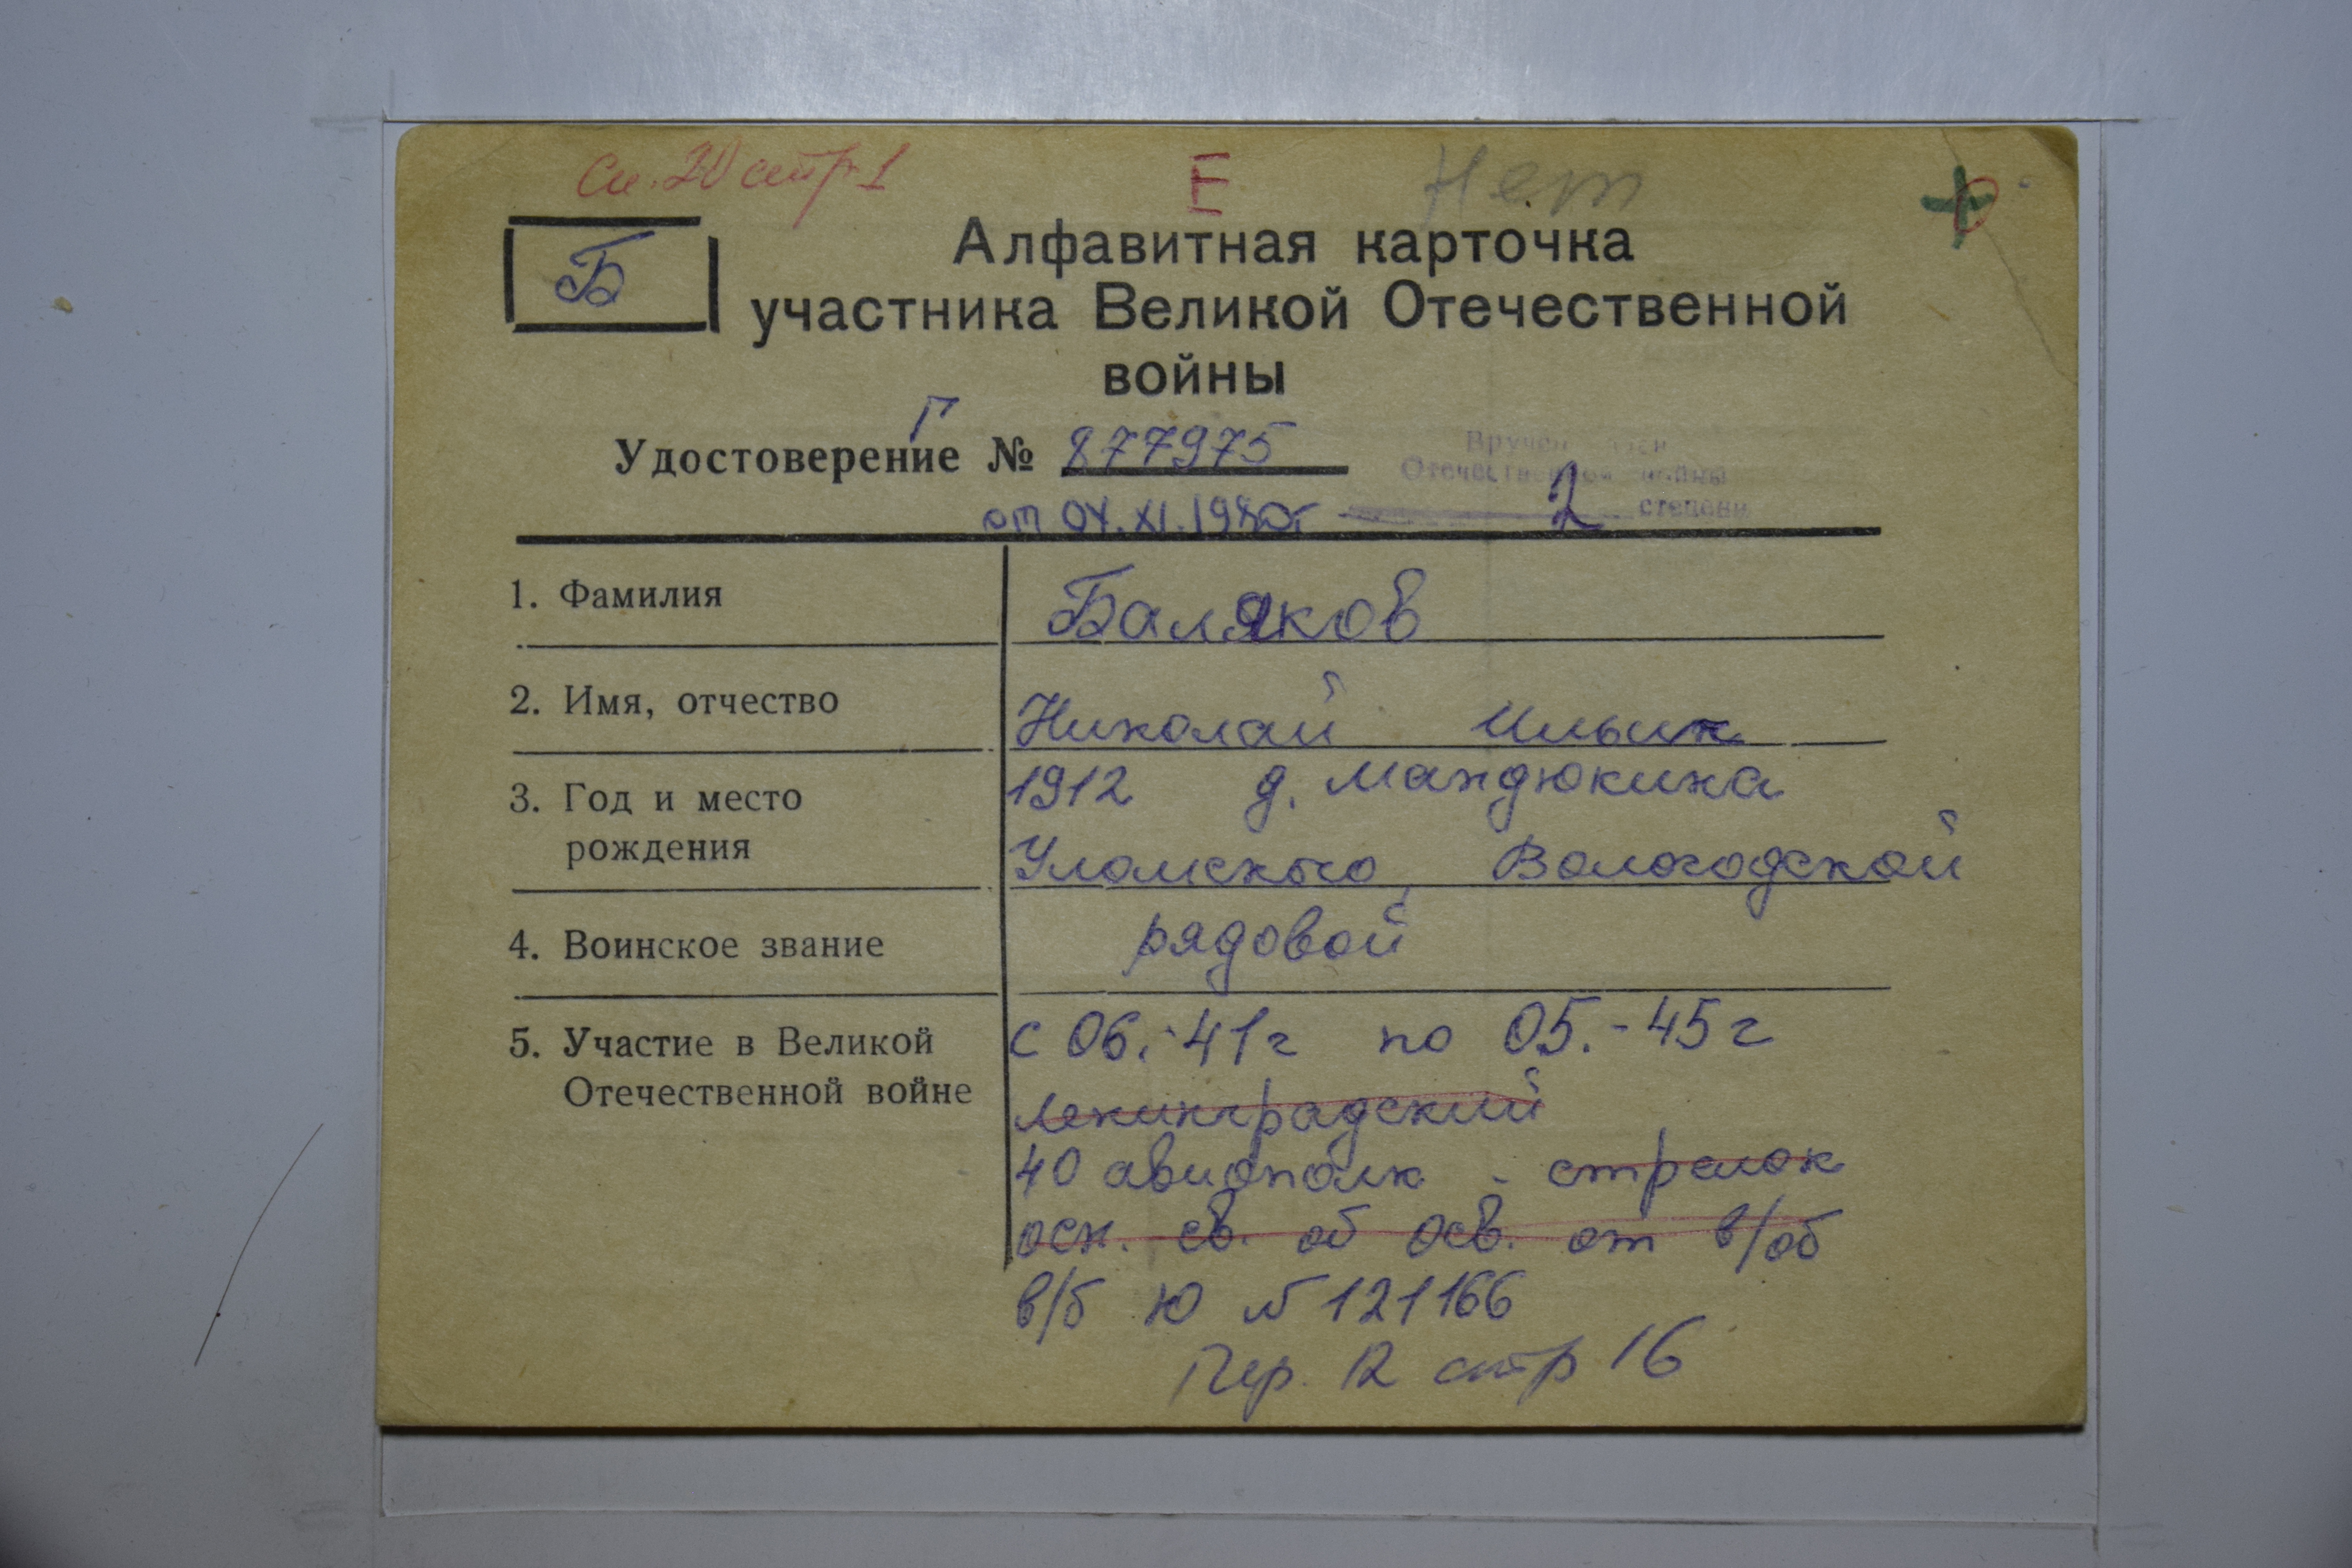 Сп. 20 стр 1
Е
Нет
Б
Алфавитная карточка
участника Великой Отечественной
войны
Удостоверение Г № 877975
Вручен
Отечественной войны
2 степени
от 04.XI.1980г
1. Фамилия Баляков
2. Имя, отчество Николай Ильин
3. Год и место 1912 д. Мандюкина
рождения Уломского Вологодской
4. Воинское звание рядовой
5. Участие в Великой с 06.-41г по 05.-45г
Отечественной войне Ленинградский
40 авиополк - стрелок
осн. св. об осв. от в/об
в/б Ю № 121166
Пер. 12 стр 16